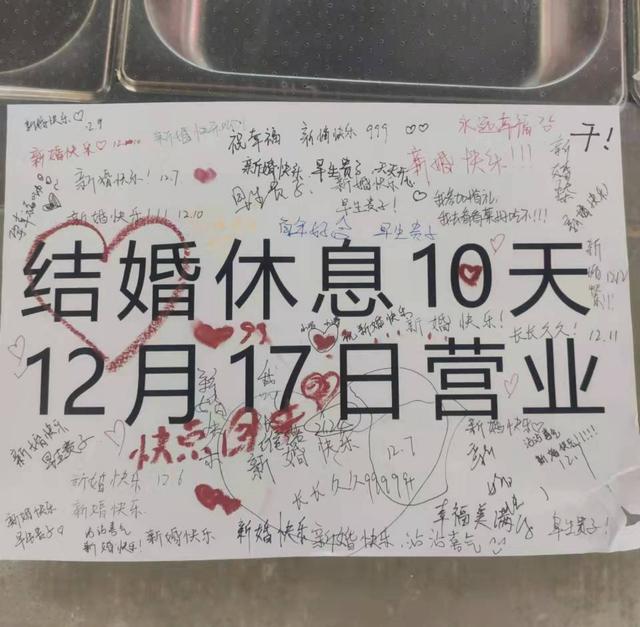 新婚快乐♡ 12.9
新婚快乐♡
新婚快乐! 12.7
新婚快乐!!! 12.10
祝幸福
新婚快乐 999
永远幸福
干!
新婚快乐
早生贵子
新婚快乐!!!
新婚快乐
早生贵子!
百年好合
早生贵子
结婚休息10天
12月17日营业
99
祝新婚快乐
新婚快乐!
长长久久!
12.11
快点回来
新婚快乐
12.7
长长久久99999
新婚快乐
早生贵子
新婚快乐 12.6
新婚快乐
新婚快乐
沾沾喜气
新婚快乐!!!!
12.9
新婚快乐
早生贵子♡
沾沾喜气
新婚快乐!
新婚快乐
新婚快乐
新婚快乐
沾沾喜气
幸福美满
早生贵子!